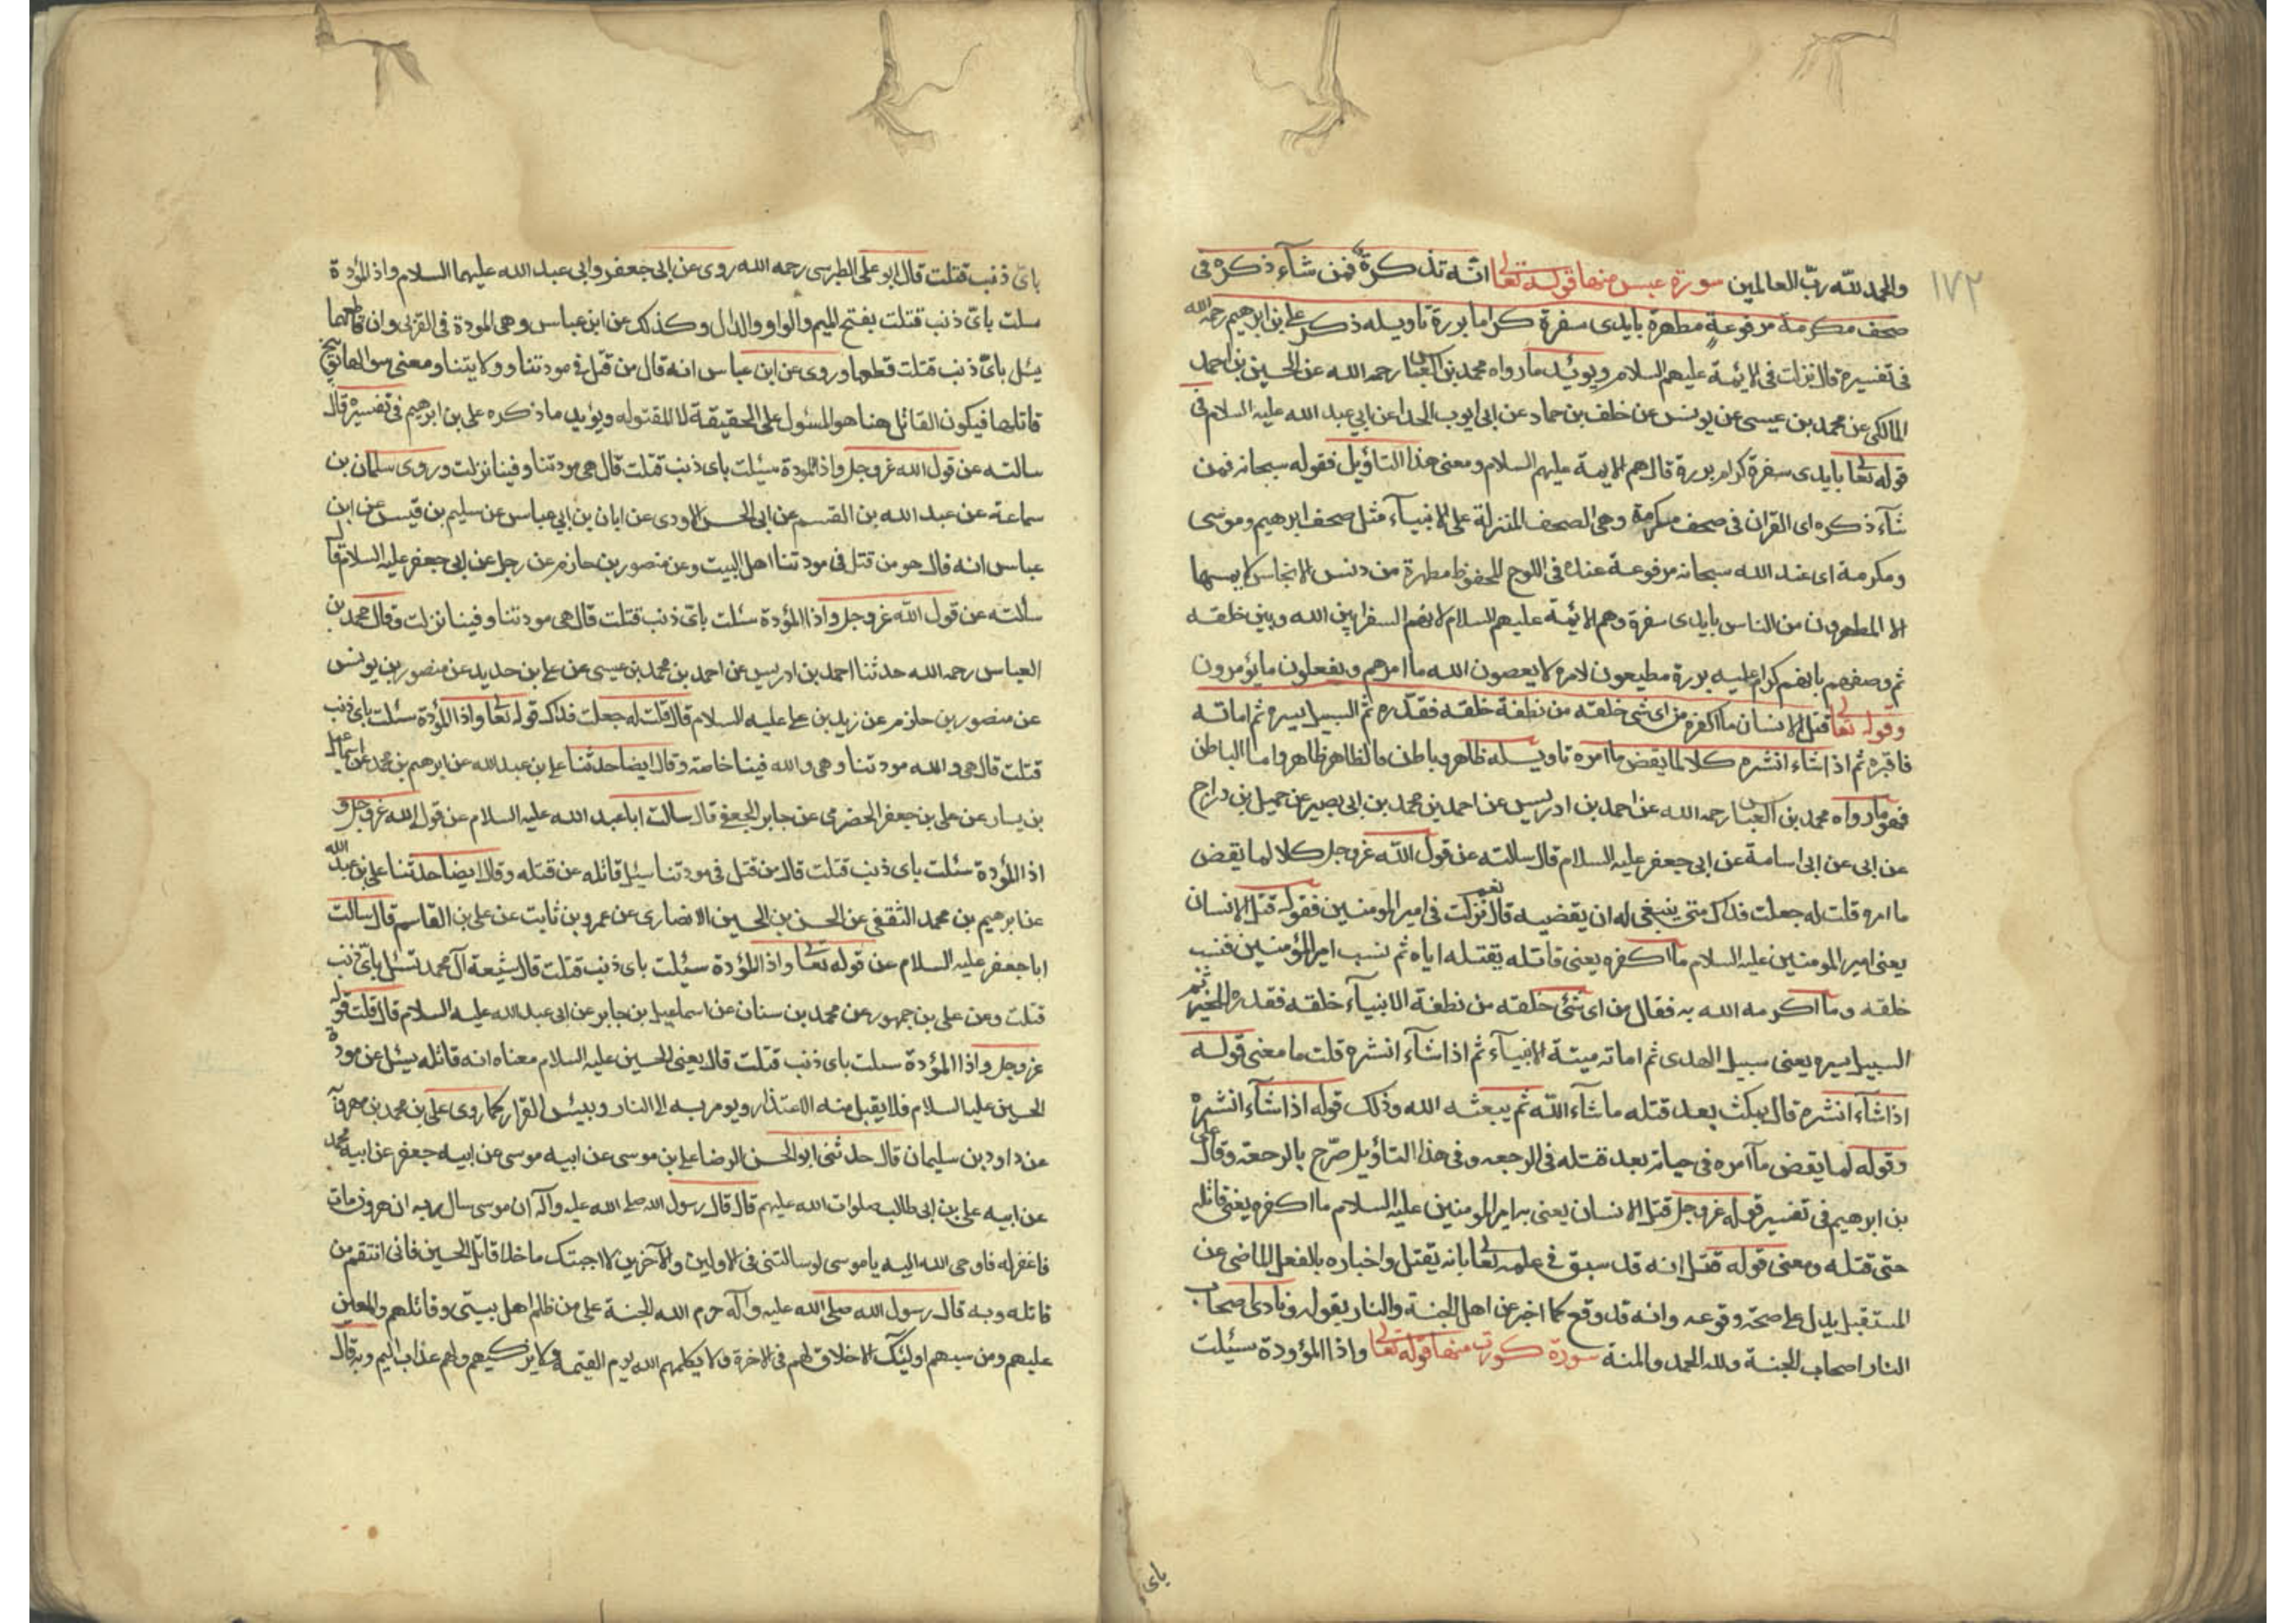 ١٧٢
والحمد لله ربّ العالمين سورة عبس منها قوله تعالى انّه تذكرة فمن شآء ذكره فى
صحف مكرمة مرفوعةٍ مطهرة بايدى سفرة كراما بررة تاويله ذكر على بن ابرهيم رحمه الله
فى تفسيره قال نزلت فى الائمة عليهم السلام ويوئيد مارواه محمد بن العباس رحمه الله عن الحسين بن احمد
المالكى عن محمد بن عيسى عن يونس عن خلف بن حماد عن ابى ايوب الحدا عن ابي عبد الله عليه السلام فى
قوله تعالى بايدى سفرة كرام بررة قال هم الائمة عليهم السلام ومعنى هذا التاؤيل فقوله سبحانه فمن
شآء ذكره اى القران فى صحف مكرمة وهى الصحف المنزلة على الانبيآء مثل صحف ابرهيم وموسى
ومكرمة اى عند الله سبحانه مرفوعة عنده فى اللوح المحفوظ مطهرة من دنس الانجاس لايمسها
الا المطهرون من الناس بايدى سفرة وهم الائمة عليهم السلام لانهم السفرا بين الله وبين خلقه
ثم وصفهم بانهم كرام عليه بررة مطيعون لامره لا يعصون الله ما امرهم ويفعلون مايؤمرون
وقوله تعالى قتل الانسان مآ اكفره من اى شى خلقه من نطفة خلقه فقدّره ثم السبيل يسره ثم اماته
فاقبره ثم اذا شاء انشره كلا لما يقض ما امره تاويله ظاهر وباطن فالظاهر ظاهر واما الباطن
فهو مارواه محمد بن العباس رحمه الله عن احمد بن ادريس عن احمد بن محمد بن ابى بصير عن جميل بن دراج
عن ابى عن ابى اسامة عن ابى جعفر عليه السلام قال سالته عن قول الله عزوجل كلا لما يقض
ما امره قلت له جعلت فداك متى ينبغى له ان يقضيه قال نعم نزلت فى امير المومنين فقوله قتل الانسان
يعنى امير المومنين عليه السلام ما اكفره يعنى قاتله بقتله اياه ثم نسب امير المؤمنين فنسب
خلقه وما اكرمه الله به فقال من اى شئى خلقه من نطفة الانبيآء خلقه فقدره للخير ثم
السبيل يسره يعنى سبيل الهدى ثم اماته ميتة الانبيآء ثم اذا شآء انشره قلت ما معنى قوله
اذا شآء انشره قال يمكث بعد قتله ما شآء الله ثم يبعثه الله وذلك قوله اذا شآء انشره
وقوله لما يقض مآ امره فى حياته بعد قتله فى الرجعه وفى هذا التاؤيل صرّح بالرجعة وقال على
بن ابرهيم فى تفسير قوله عزوجل قتل الانسان يعنى به امير المومنين عليه السلام ما اكفره يعنى قاتله
حتى قتله ومعنى قوله قتل انه قد سبق فى علمه تعالى بانه يقتل واخباره بالفعل الماضى عن
المستقبل يدل على صحة وقوعه وانه قد وقع كما اخبر عن اهل الجنة والنار بقوله ونادى اصحاب
النار اصحاب الجنة ولله الحمد والمنة سورة كورت منها قوله تعالى واذا المؤودة سيئلت
باى
باىّ ذنب قتلت قال ابو على الطبرسى رحمه الله روى عن ابى جعفر وابى عبد الله عليهما السلام واذ المؤدة
سلت باىّ ذنب قتلت بفتح الميم والواو والدال وكذلك عن ابن عباس وهى المودة فى القربى وان قاطعها
يسئل باىّ ذنب قتلت قطعها وروى عن ابن عباس انه قال من قتل فى مودتنا وولايتنا ومعنى سوالها توبيخ
قاتلها فيكون القاتل هنا هو المسئول على الحقيقة لا المقتوله ويؤيد ماذكره على بن ابرهيم فى تفسيره قال
سالته عن قول الله عزوجل واذ المودة سيئلت باى ذنب قتلت قال هى مودتنا وفينا نزلت وروى سلمان بن
سماعة عن عبد الله بن القسم عن ابى الحسن الاودى عن ابان بن ابي عباس عن سليم بن قيس عن ابن
عباس انه قال هو من قتل فى مودتنا اهل البيت وعن منصور بن حازم عن رجل عن ابى جعفر عليه السلام قال
سألته عن قول الله عزوجل واذا المؤدة سئلت باىّ ذنب قتلت قال هى مودتنا وفينا نزلت وقال محمد بن
العباس رحمه الله حدثنا احمد بن ادريس عن احمد بن محمد بن عيسى عن على بن حديد عن منصور بن يونس
عن منصور بن حازم عن زيد بن على عليه السلام قال قلت له جعلت فداك قوله تعالى واذا المؤدة سئلت باى ذنب
قتلت قال هى والله مودتنا وهى والله فينا خاصة وقال ايضا حدثنا على بن عبد الله عن ابرهيم بن محمد عن اسماعيل
بن يسار عن على بن جعفر الحضرمى عن جابر الجعفى قال سالت ابا عبد الله عليه السلام عن قول الله عزوجل و
اذا المؤدة سئلت باى ذنب قتلت قال من قتل فى مودتنا سئل قاتله عن قتله وقال ايضا حدثنا على بن عبد الله
عن ابرهيم بن محمد الثقفى عن الحسن بن الحسين الانصارى عن عمرو بن ثابت عن على بن القاسم قال سالت
ابا جعفر عليه السلام عن قوله تعالى واذ المؤدة سيئلت باى ذنب قتلت قال شيعة آل محمد تسئل باىّ ذنب
قتلت وعن على بن جمهور عن محمد بن سنان عن اسماعيل بن جابر عن ابى عبد الله عليه السلام قال قلت قوله
عزوجل واذا المؤدة سلت باى ذنب قتلت قال يعنى الحسين عليه السلام معناه انه قاتله يسئل عن مودة
الحسين عليه السلام فلا يقبل منه الاعتذار ويومر به الى النار وبيئس القرار كما روى على بن محمد بن
عن داود بن سليمان قال حدثنى ابو الحسن الرضا على بن موسى عن ابيه موسى عن ابيه جعفر عن ابيه محمد
عن ابيه على بن ابى طالب صلوات الله عليهم قال قال رسول الله صلى الله عليه وآله ان موسى سال ربه ان هرون مات
فاغفر له فاوحى الله اليه ياموسى لو سالتنى فى الاولين والآخرين لاجبتك ماخلا قاتل الحسين فانى انتقم من
قاتله وبه قال رسول الله صلى الله عليه وآله حرم الله الجنة على من ظلم اهل بيتى وقاتلهم والمعين
عليهم ومن سبهم اوليئك لاخلاق لهم فى الاخرة ولا يكلمهم الله يوم القيمة ولا يزكيهم ولهم عذاب اليم وبه قال